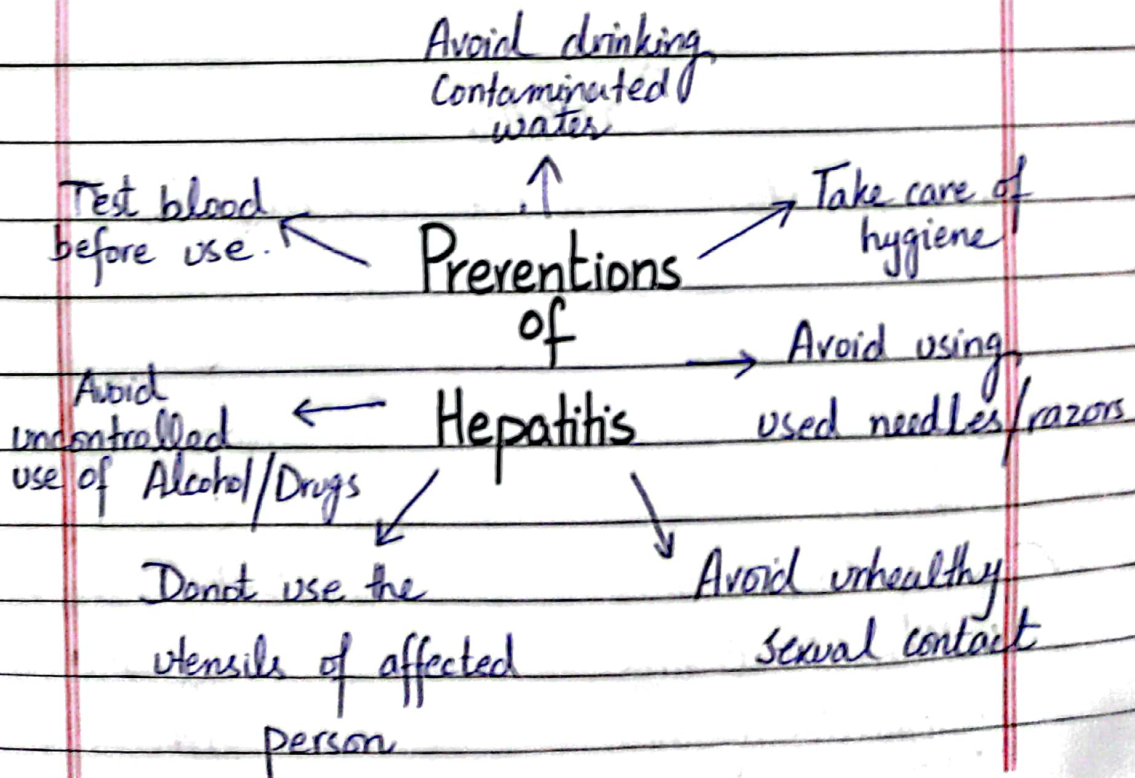 Avoid drinking
Contaminated
water
Test blood
before use.
Take care of
hygiene
Preventions
of
Hepatitis
Avoid using
used needles/razors
Avoid
uncontrolled
use of Alcohol/Drugs
Donot use the
utensils of affected
person
Avoid unhealthy
sexual contact